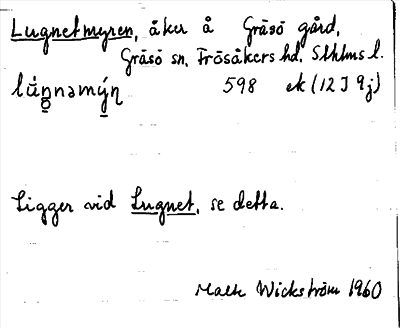 Lugnetmyren, åker å Gräsö gård,
Gräsö sn, Frösåkers hd, Sthlms l.
598 ek (12I9j)
Ligger vid Lugnet, se detta.
Mats Wickström 1960